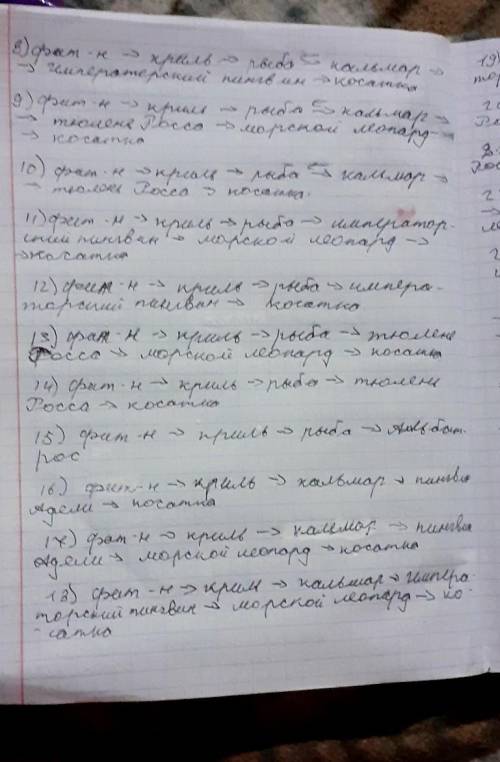 8) фит-н → криль → рыба ⇆ кальмар →
→ императерский пингвин → косатка
9) фит-н → криль → рыба ⇆ кальмар →
→ тюлень Росса → морской леопард →
→ косатка
10) фит-н → криль → рыба ⇆ кальмар →
→ тюлень Росса → косатка.
11) фит-н → криль → рыба → император-
ский пингвин → морской леопард →
→ косатка
12) фит-н → криль → рыба → импера-
торский пингвин → косатка
13) фит-н → криль → рыба → тюлень
Росса → морской леопард → косатка
14) фит-н → криль → рыба → тюлень
Росса → косатка
15) фит-н → криль → рыба → Альбат-
рос
16) фит-н → криль → кальмар → пингвин
Адели → косатка
17) фит-н → криль → кальмар → пингвин
Адели → морской леопард → косатка
18) фит-н → криль → кальмар → импера-
торский пингвин → морской леопард → ко-
-сатка
19)
тор